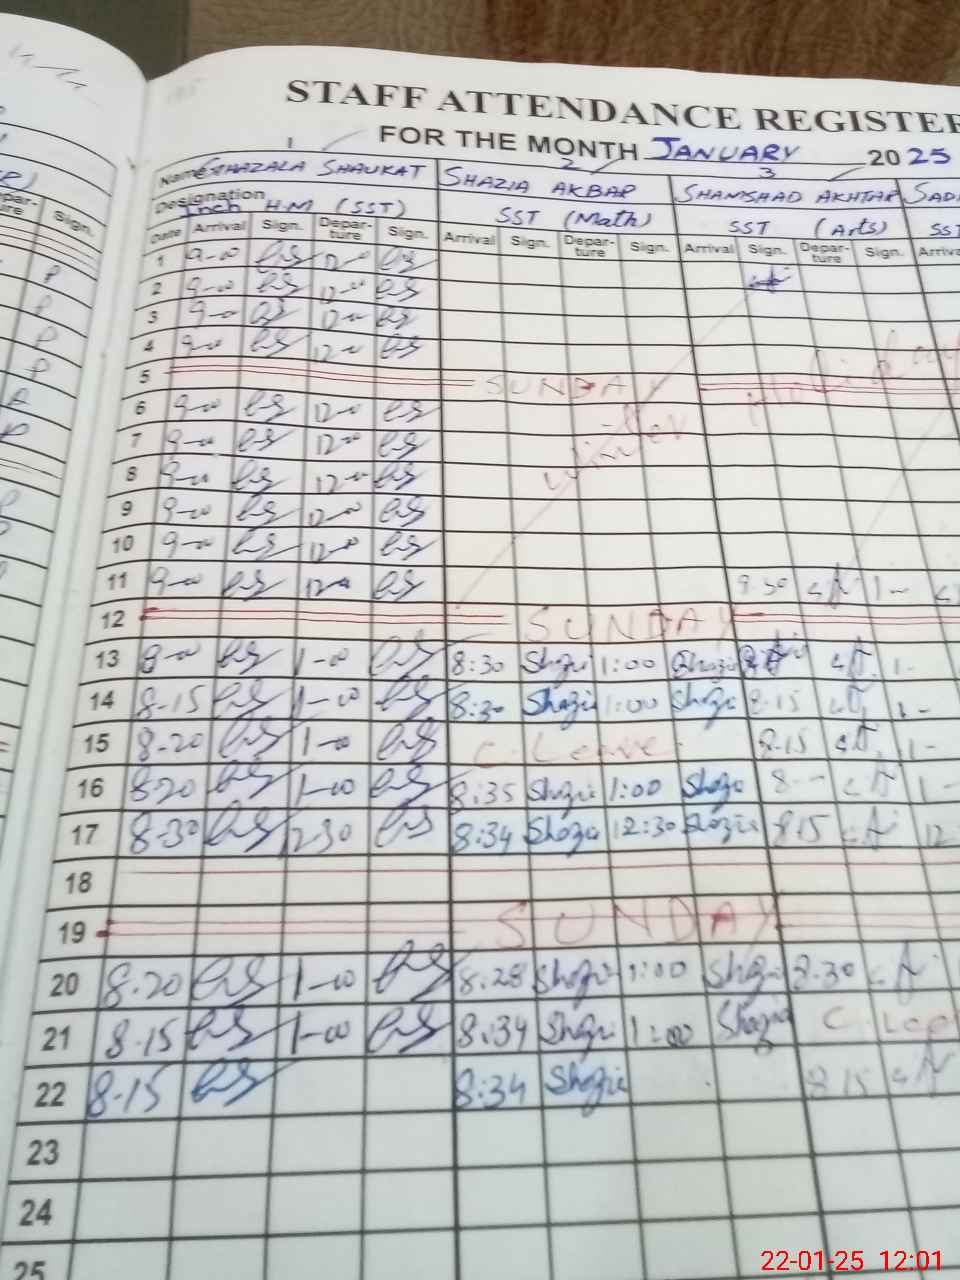 STAFF ATTENDANCE REGISTER
FOR THE MONTH JANUARY 2025
1 2 3
Name GHAZALA SHAUKAT SHAZIA AKBAR SHAMSHAD AKHTAR SADI
Designation Inch H.M (SST) SST (Math) SST (Arts) SST
Date Arrival Sign. Depar-ture Sign. Arrival Sign. Depar-ture Sign. Arrival Sign. Depar-ture Sign. Arriva
1 9-00 12-00
2 9-00 12-00
3 9-00 12-00
4 9-00 12-00
5 SUNDAY
6 9-00 12-00
7 9-00 12-00
8 9-00 12-00
9 9-00 12-00
10 9-00 12-00
Winter Holiday
11 9-00 12-00 9.30 1-
12 SUNDAY
13 8-00 1-00 8:30 Shazia 1:00 Shazia 1-
14 8-15 1-00 8:30 Shazia 1:00 Shazia 8.15 1-
15 8-20 1-00 C. Leave 8-15 1-
16 8-20 1-00 8:35 Shazia 1:00 Shazia 8-- 1-
17 8-30 12-30 8:34 Shazia 12:30 Shazia 8.15 12
18
19 SUNDAY
20 8.20 1-00 8:28 Shazia 1:00 Shazia 8.30
21 8.15 1-00 8:34 Shazia 1:00 Shazia C. Lea
22 8-15 8:34 Shazia 8.15
23
24
25
22-01-25 12:01